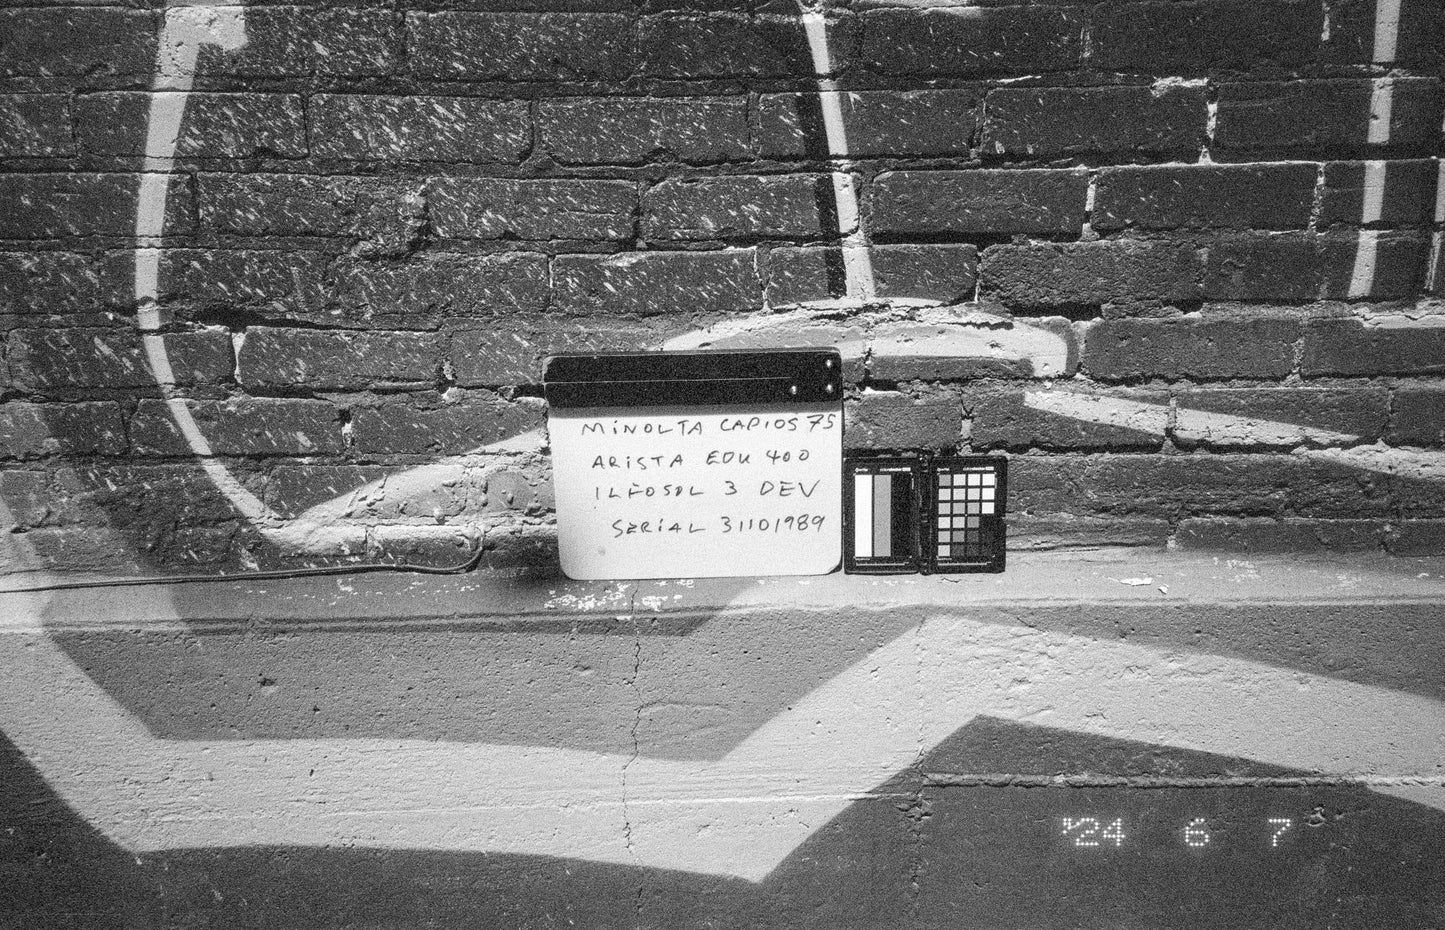 MINOLTA CAPIOS 75
ARISTA EDU 400
ILFOSOL 3 DEV
SERIAL 31101989
'24 6 7